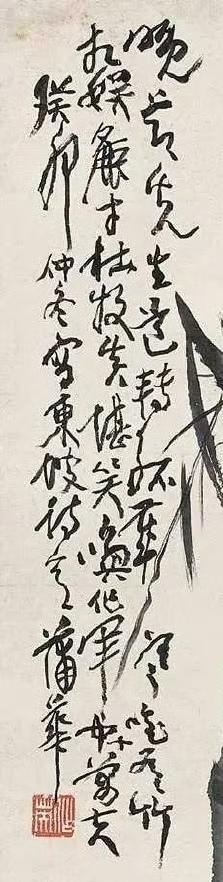 晚節先生道轉孤歲寒唯有竹
相娛麤才杜牧真堪笑喚作軍中十萬夫
癸卯仲冬寫東坡詩意蒲華